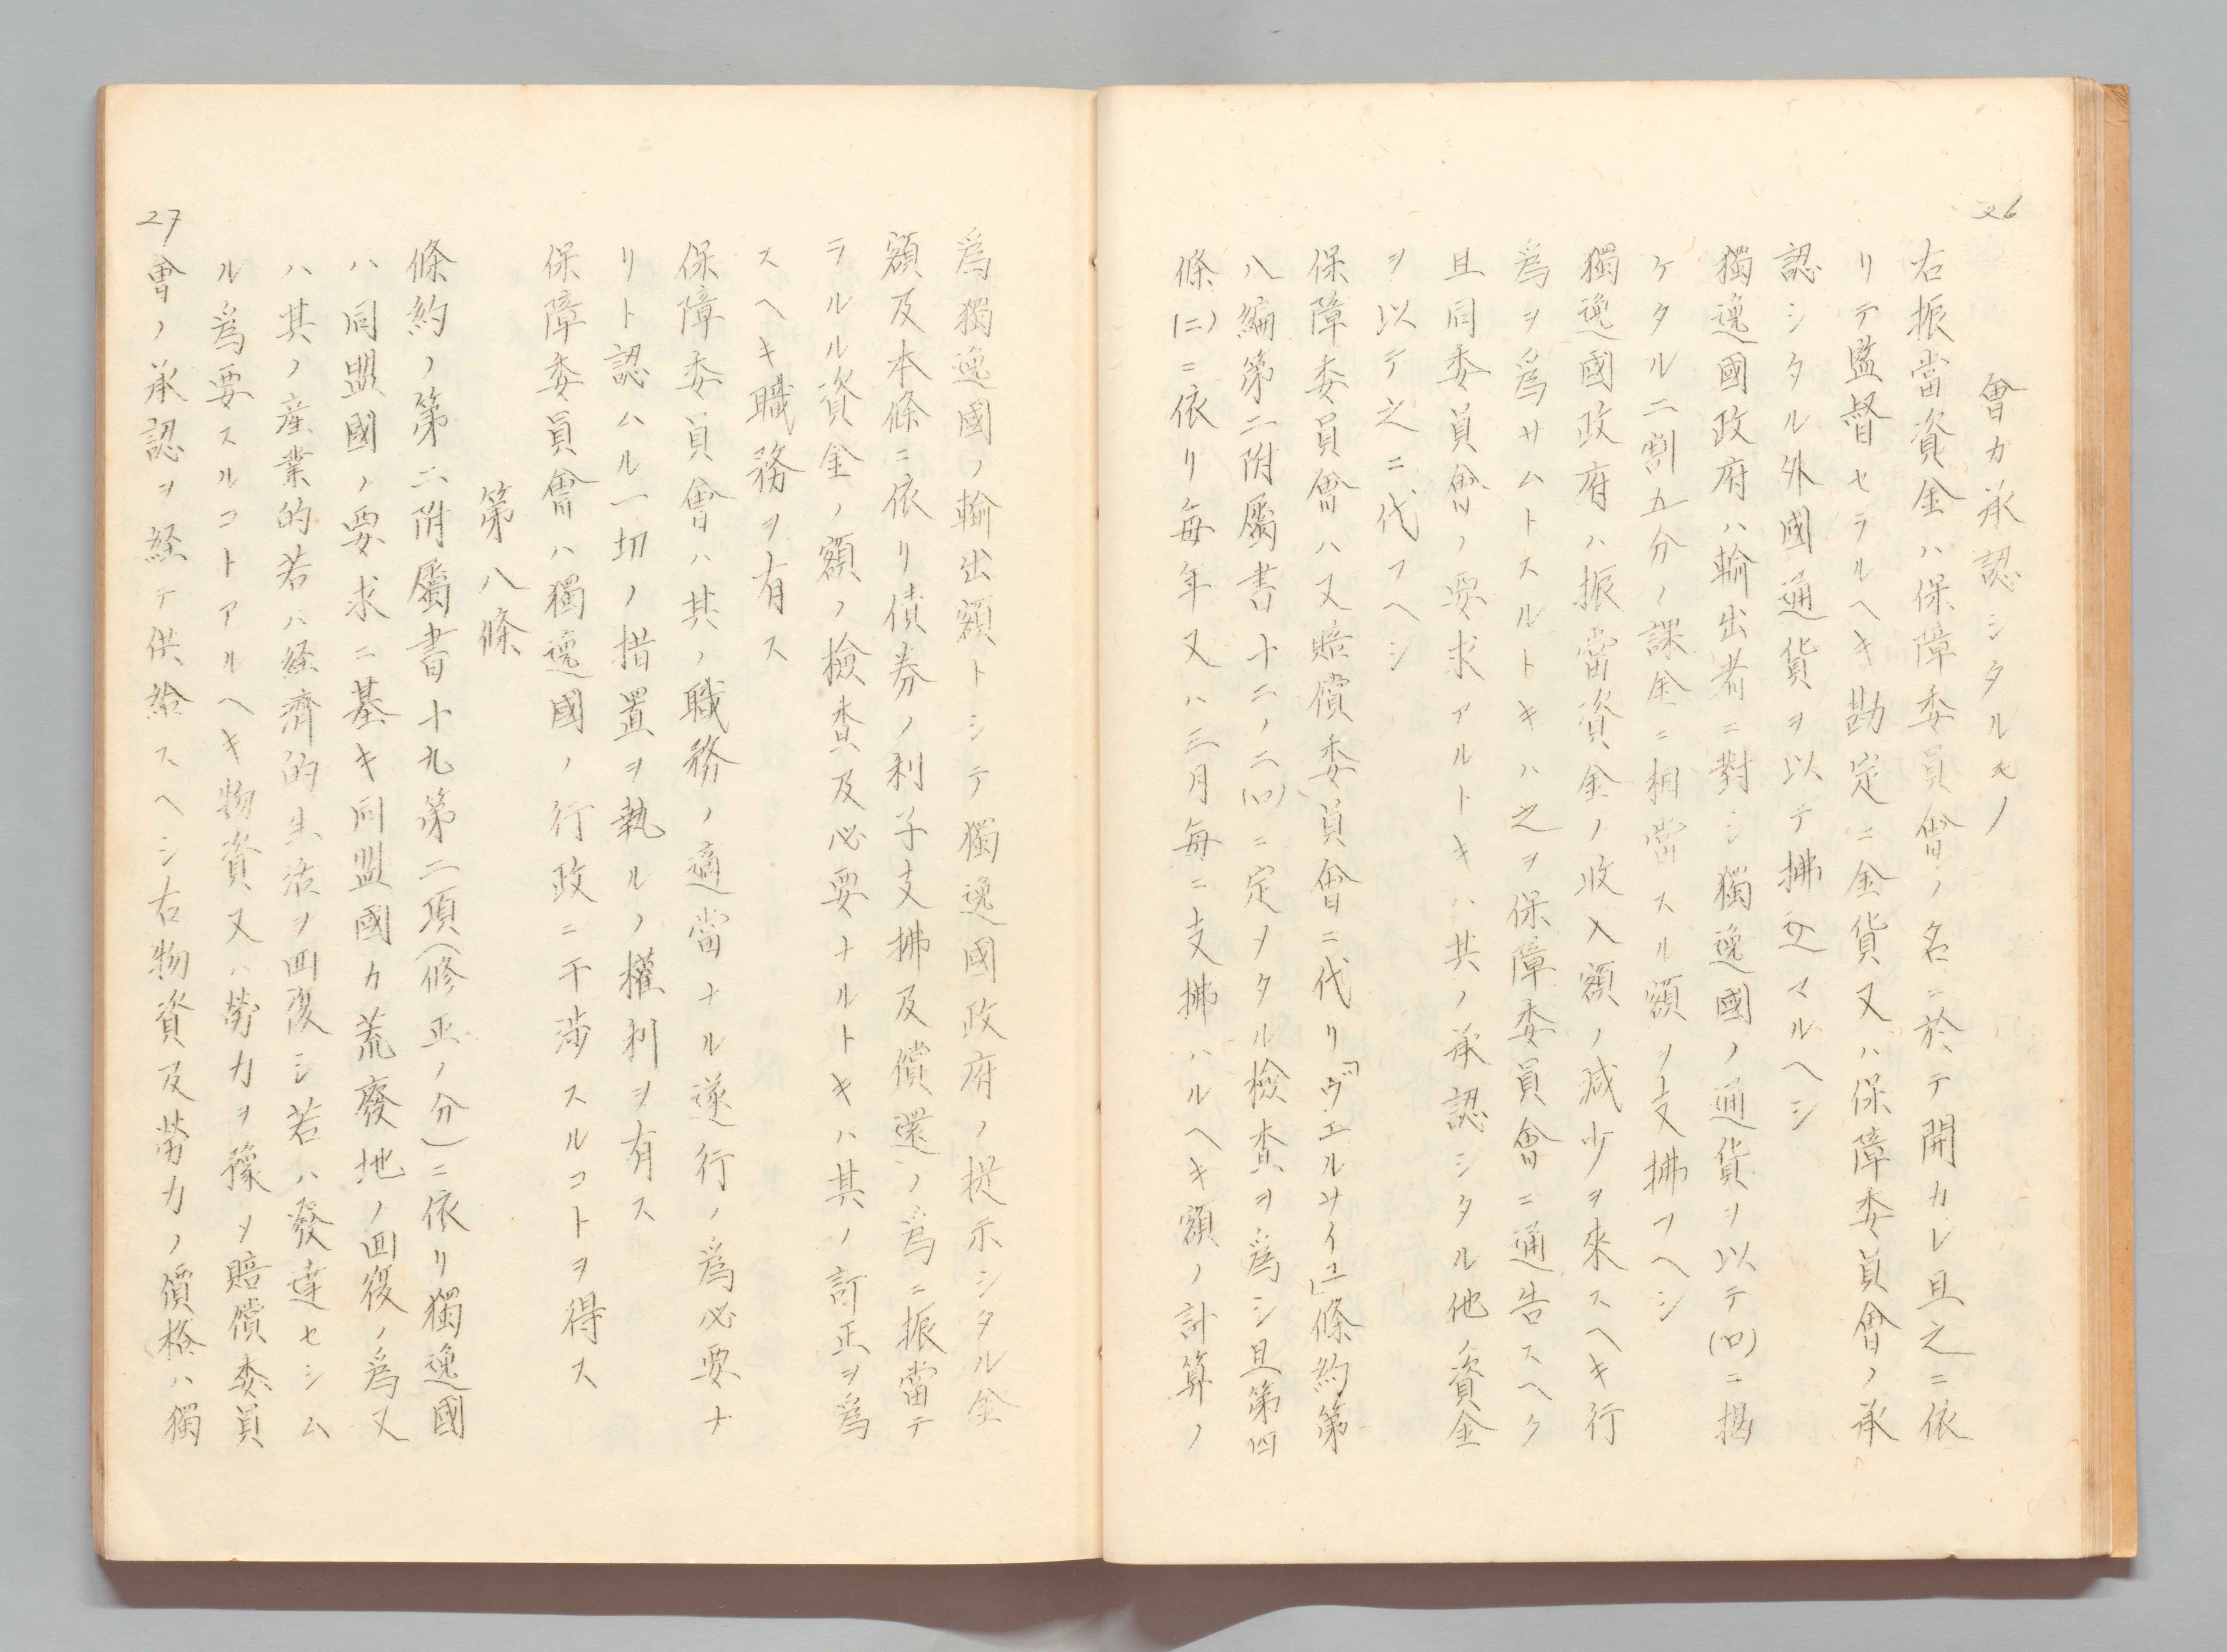 26
會カ承認シタルモノ
右振當資金ハ保障委員會ノ名ニ於テ開カレ且之ニ依
リテ監督セラルヘキ勘定ニ金貨又ハ保障委員會ノ承
認シタル外國通貨ヲ以テ拂込マルヘシ
獨逸國政府ハ輸出者ニ對シ獨逸國ノ通貨ヲ以テ(ロ)ニ揭
ケタル二割五分ノ課金ニ相當スル額ヲ支拂フヘシ
獨逸國政府ハ振當資金ノ收入額ノ減少ヲ來スヘキ行
爲ヲ爲サムトスルトキハ之ヲ保障委員會ニ通告スヘク
且同委員會ノ要求アルトキハ其ノ承認シタル他ノ資金
ヲ以テ之ニ代フヘシ
保障委員會ハ又賠償委員會ニ代リ「ヴエルサイユ」條約第
八編第二附屬書十二ノ二(ロ)ニ定メタル檢査ヲ爲シ且第四
條(二)ニ依リ每年又ハ三月每ニ支拂ハルヘキ額ノ計算ノ
爲獨逸國ノ輸出額トシテ獨逸國政府ノ提示シタル金
額及本條ニ依リ債券ノ利子支拂及償還ノ爲ニ振當テ
ラルル資金ノ額ノ檢查及必要ナルトキハ其ノ訂正ヲ爲
スヘキ職務ヲ有ス
保障委員會ハ其ノ職務ノ適當ナル遂行ノ爲必要ナ
リト認ムル一切ノ措置ヲ執ルノ權利ヲ有ス
保障委員會ハ獨逸國ノ行政ニ干涉スルコトヲ得ス
第八條
條約ノ第二附屬書十九第二項(修正ノ分)ニ依リ獨逸國
ハ同盟國ノ要求ニ基キ同盟國カ荒廢地ノ回復ノ爲又
ハ其ノ産業的若ハ経濟的生活ヲ回復シ若ハ發達セシム
ル爲要スルコトアルヘキ物資又ハ勞力ヲ豫メ賠償委員
27
會ノ承認ヲ経テ供給スヘシ右物資及勞力ノ價格ハ獨